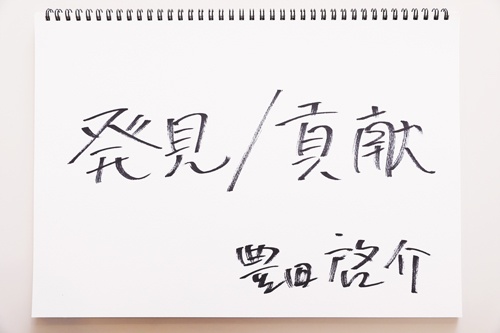 発見/貢献
豊田啓介